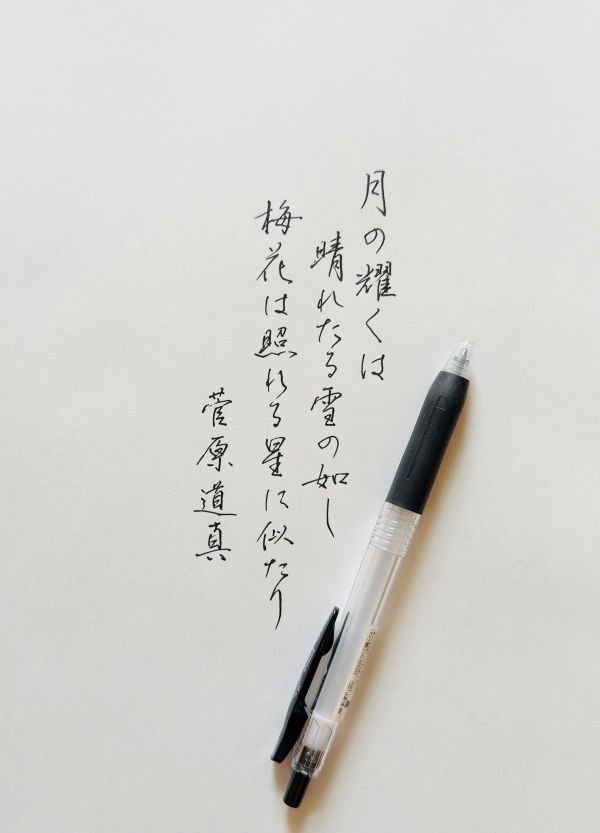 月の耀くは
晴れたる雪の如し
梅花は照れる星に似たり
菅原道真